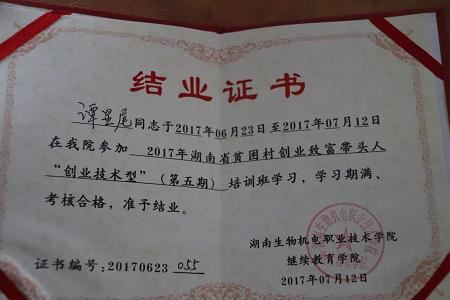 结业证书
谭显尾同志于2017年06月23日至2017年07月12日
在我院参加 2017年湖南省贫困村创业致富带头人
“创业技术型”（第五期）培训班学习，学习期满、
考核合格，准予结业。
湖南生物机电职业技术学院
继续教育学院
2017年07月12日
证书编号：20170623 055